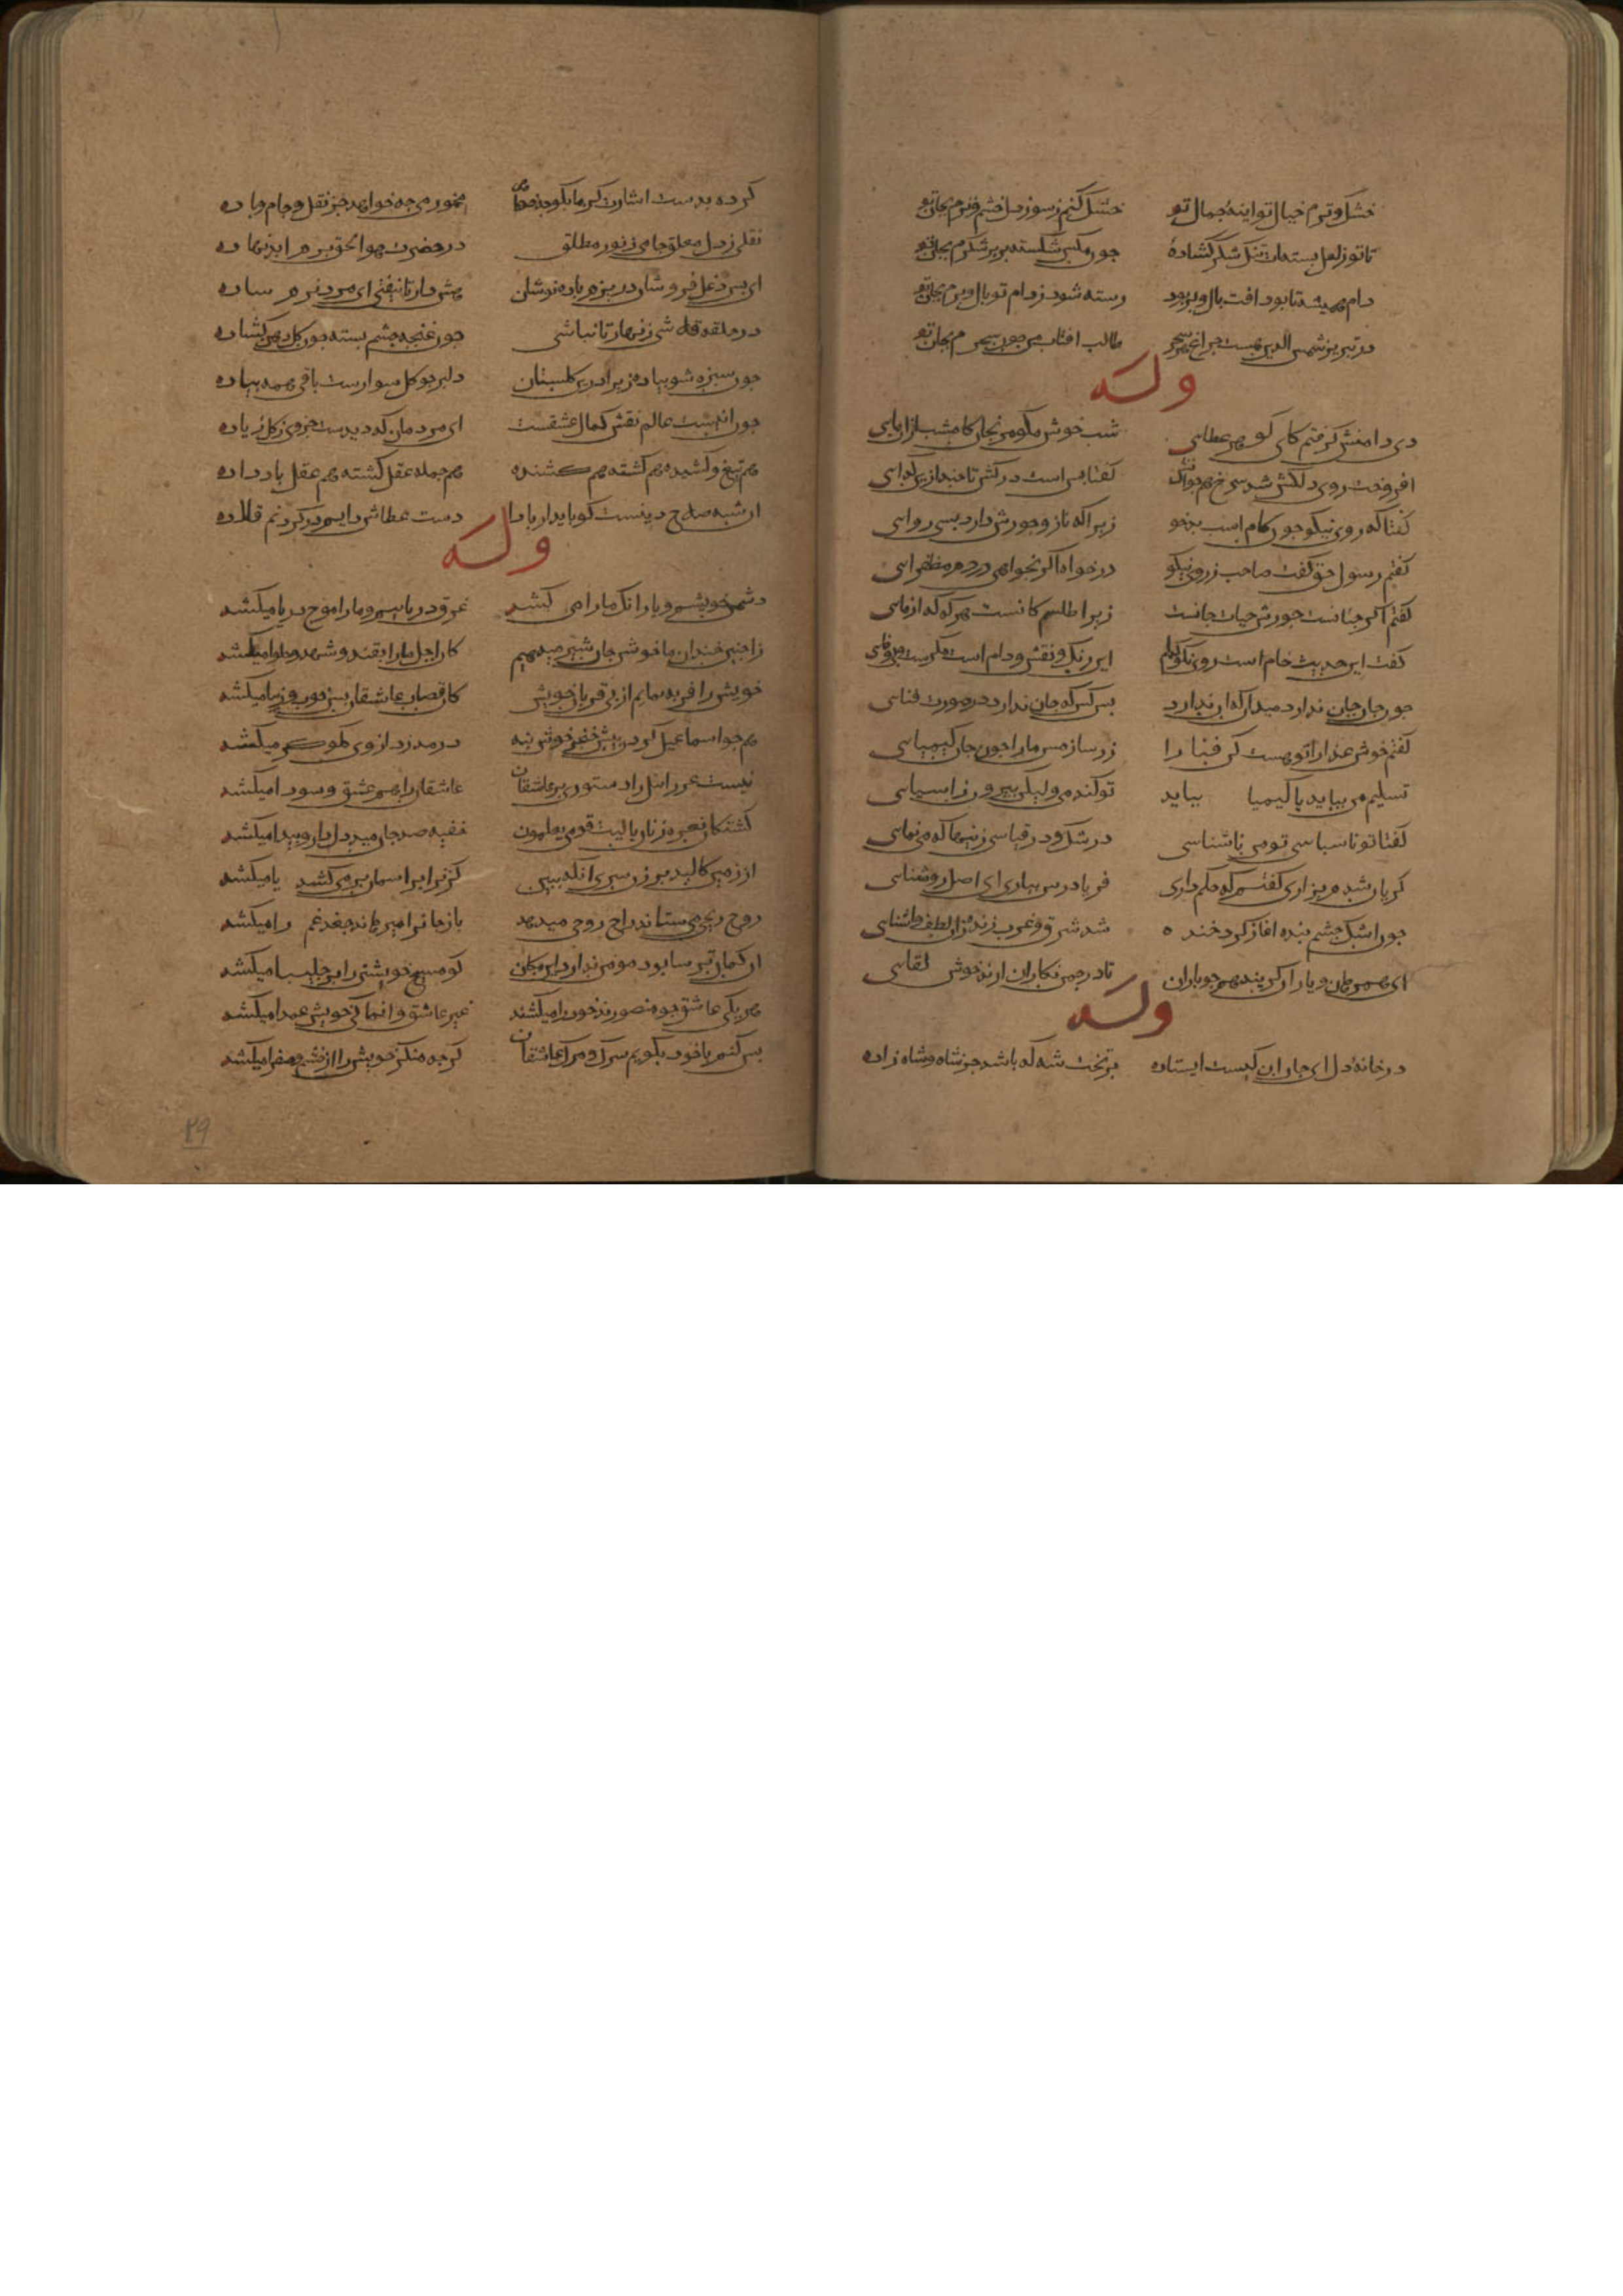 خشک و ترم خیال تو اینهٔ جمال تو خشک کنم ز سوز دل خشم و ترم بجان تو
تا تو ز لعل بسته ات تنک شکر کشادهٔ چون مکس شکسته پر بر شکرم بجان تو
دام همیشه تا بود افت بال و پر بود رسته شود ز دام تو بال و پرم بجان تو
در تبریز شمس الدین هست چراغ هر سحر طالب افتاب من چون سحرم بجان تو
وله
دی دامنش کرفتم کای کوهر عطایی شب خوش مکو مرنجان کامشب ازان مایی
افروخت روی دلکش شد سرخ همچو آتش کفتا بس است درکش تا چند ازین کدایی
کفتا که روی نیکو چون کام است بدخو زیرا که ناز و جورش دارد بسی روایی
کفتم رسول حق کفت حاجت ز روی نیکو درخواه اکر بخواهی در دم مظفر ایی
کفتم اکر چنانست جورش حیات جانست زیرا طلسم کانست هر که که ازمایی
کفت این حدیث خام است روی نکو کدام این رنک و نقش و دام است مکرست و بی وفایی
چون جان جان ندارد میدان که ان ندارد بس کس که جان ندارد در صورت فنایی
کفتم خوش عذارا تو هست کن فنا را زر ساز مس ما را چون جان کیمیایی
تسلیم می بباید با کیمیا بیاید تو کندمی ولیکن بیرون ز اسیایی
کفتا تو ناسپاسی تو مس ناشناسی در شک و در قیاسی زینها که می نمایی
کریان شدم بزاری کفتم که حکم داری فریاد رس بیاری ای اصل روشنایی
چون اشک چشم بنده اغاز کرد خنده شد شرق و غرب زنده زان لطف اشنایی
ای همرهان و یاران کریید همچو باران تا در چمن نکاران ارند خوش لقایی
وله
در خانهٔ دل ای جان ان کیست ایستاده بر تخت شه که باشد جز شاه و شاه زاده
کرده بدست اشارت کز ما بکو چه خواهی مخمور می چه خواهد جز نقل و جام و باده
نقلی ز دل معلق جامی ز نور مطلق در حضرت هو الحق بزم ابد نهاده
ای بس دغل فروشان در بزم باده نوشان هش دار تا نیفتی ای مرد نرم ساده
در حلقه قلاشی زنهار تا نباشی چون غنچه چشم بسته چون کل دهن کشاده
چون سبزه شو پیاده زیرا درین کلستان دلبر چو کل سوارست باقی همه پیاده
چون اینهست عالم نقش کمال عشقست ای مردمان که دیدست جزوی ز کل زیاده
هم تیغ و کشیده هم کشته هم کشنده هم جمله عقل کشته هم عقل باد داده
ان شه صلاح دینست کو پایدار بادا دست عطاش دایم در کردنم قلاده
وله
دشمن خویشیم و یار انک ما را می کشد غرق دریاییم و ما را موج دریا میکشد
زان چنین خندان ما خوش جان شیرین میدهیم کان اجل ما را بقند و شهد و حلوا میکشد
خویش را فربه نماییم از پی قربان خویش کان قصاب عاشقان بس خوب و زیبا میکشد
هم چو اسماعیل کردن پیش خنجر خوش بنه در مدزد از وی کلو کر میکشد
نیست عزراییل را دستوری بر عاشقان عاشقان را هم عشق و سودا میکشد
کشتکان نعره زنان یا لیت قومی یعلمون خفیه صد جان میدهد دلدار و پیدا میکشد
از زمین کالبد بر زن سری انکه ببین کو ترا بر اسمان بر می کشد یا میکشد
روح ریحی می ستاند راح روحی میدهد باز جان را میرهاند جغد غم را میکشد
ان کمان ترسا بود مومن ندارد این کمان کو مسیح خویشتن را بر چلیپا میکشد
هر یکی عاشق چو منصورند خود را میکشند غیر عاشق وانما کی خویش عمدا میکشد
بس کنم یا خود بکویم سرک و مرک عاشقان کرچه منکر خویش را از خشم و صفرا میکشد
۴۹